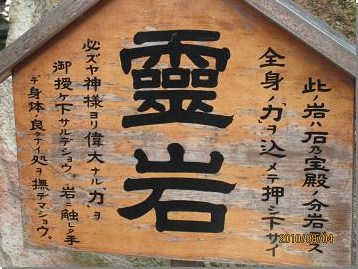 此ノ岩ハ石乃宝殿ノ分岩デス
全身ノ「力」ヲ込メテ押シ下サイ
靈岩
必ズヤ神様ヨリ偉大ナル「力」ヲ
御授ケ下サルデショウ。岩ニ触レタ手
デ身体ノ良クナイ処ヲ撫デマショウ。
2010/09/04